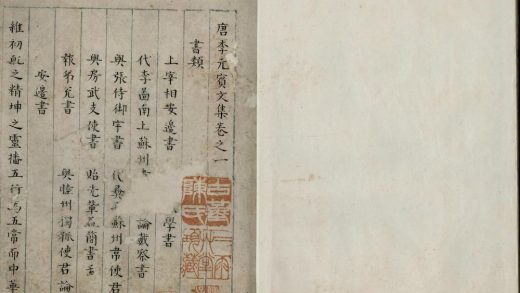 唐李元賓文集卷之一
書類
上宰相安邊書 學書
代李啚南上蘇州 論戴察書
與張侍御宇書 代彝 蘇州韋使君
與房武支使書 貽先輩孟簡書
報弟兌書 與睦州獨孤使君論
安邊書
維初乾之精坤之靈播五行為五常而中華